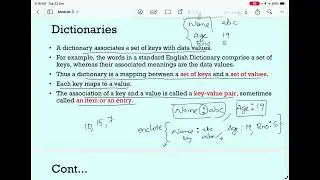 9:16 AM Tue 23 Dec
Module 3
Dictionaries
name abc
age 19
Rno 5
• A dictionary associates a set of keys with data values.
• For example, the words in a standard English Dictionary comprise a set of
keys, whereas their associated meanings are the data values.
• Thus a dictionary is a mapping between a set of keys and a set of values.
• Each key maps to a value.
• The association of a key and a value is called a key-value pair, sometimes
called an item or an entry.
Name : abc
Age : 19
10, 15, 7
enclose { Name : abc, Ag : 19, Rno : 5 }
key value
Cont...